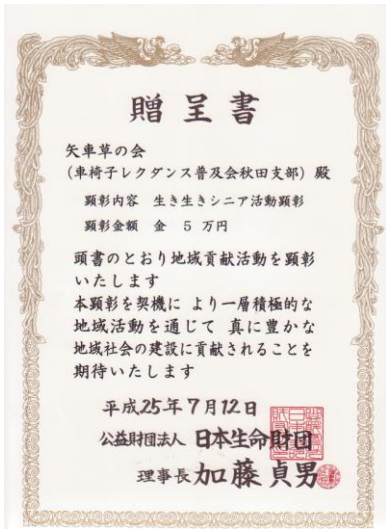 贈呈書
矢車草の会
(車椅子レクダンス普及会秋田支部) 殿
顕彰内容 生き生きシニア活動顕彰
顕彰金額 金 5 万円
頭書のとおり地域貢献活動を顕彰
いたします
本顕彰を契機に より一層積極的な
地域活動を通じて 真に豊かな
地域社会の建設に貢献されることを
期待いたします
平成25年7月12日
公益財団法人 日本生命財団
理事長 加藤貞男